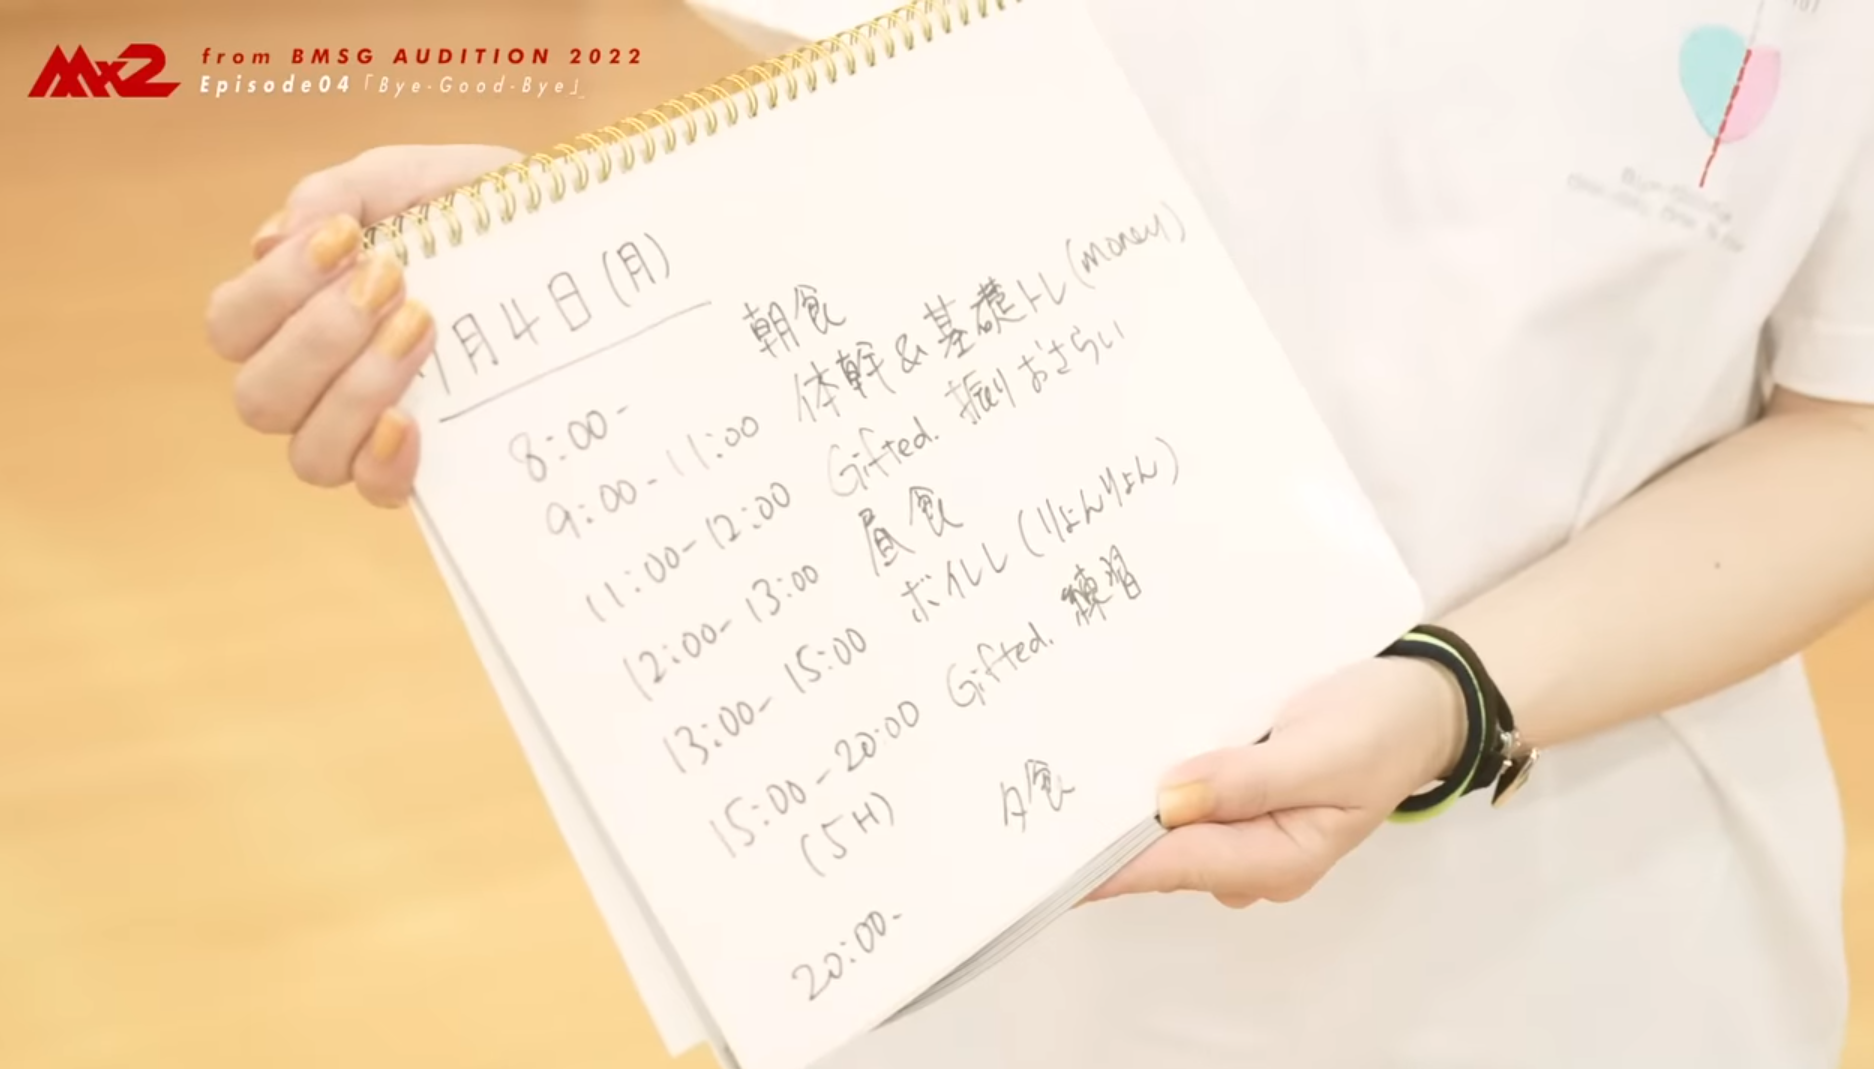 MM×2
from BMSG AUDITION 2022
Episode04「Bye-Good-Bye」
7月4日(月)
8:00- 朝食
9:00-11:00 体幹&基礎トレ(money)
11:00-12:00 Gifted. 振りおさらい
12:00-13:00 昼食
13:00-15:00 ボイトレ(りょんりょん)
15:00-20:00 Gifted. 練習
(5H)
20:00- 夕食